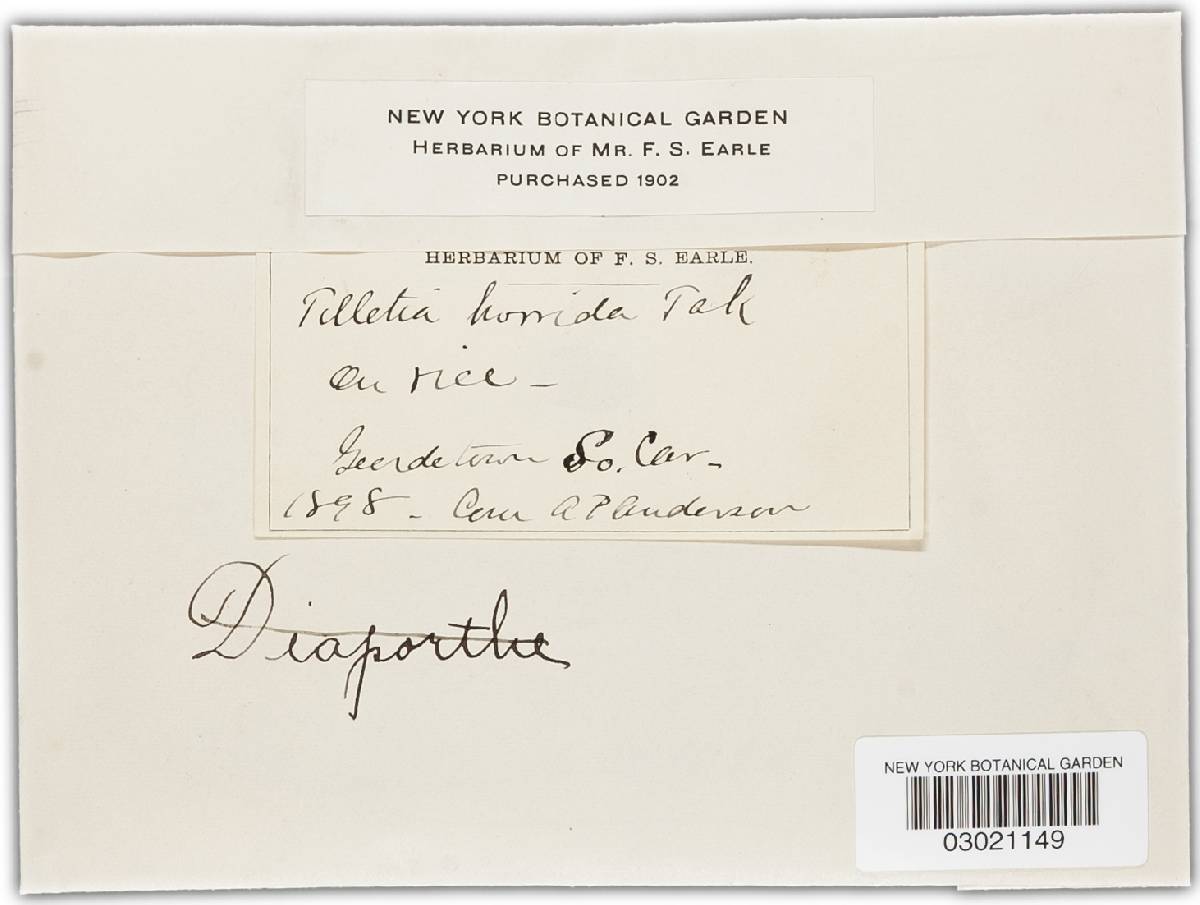 NEW YORK BOTANICAL GARDEN
HERBARIUM OF MR. F. S. EARLE
PURCHASED 1902
HERBARIUM OF F. S. EARLE.
Tilletia horrida Tak
On rice -
Georgetown So. Car-
1898 - Com A P Anderson
Diaporthe
NEW YORK BOTANICAL GARDEN
03021149